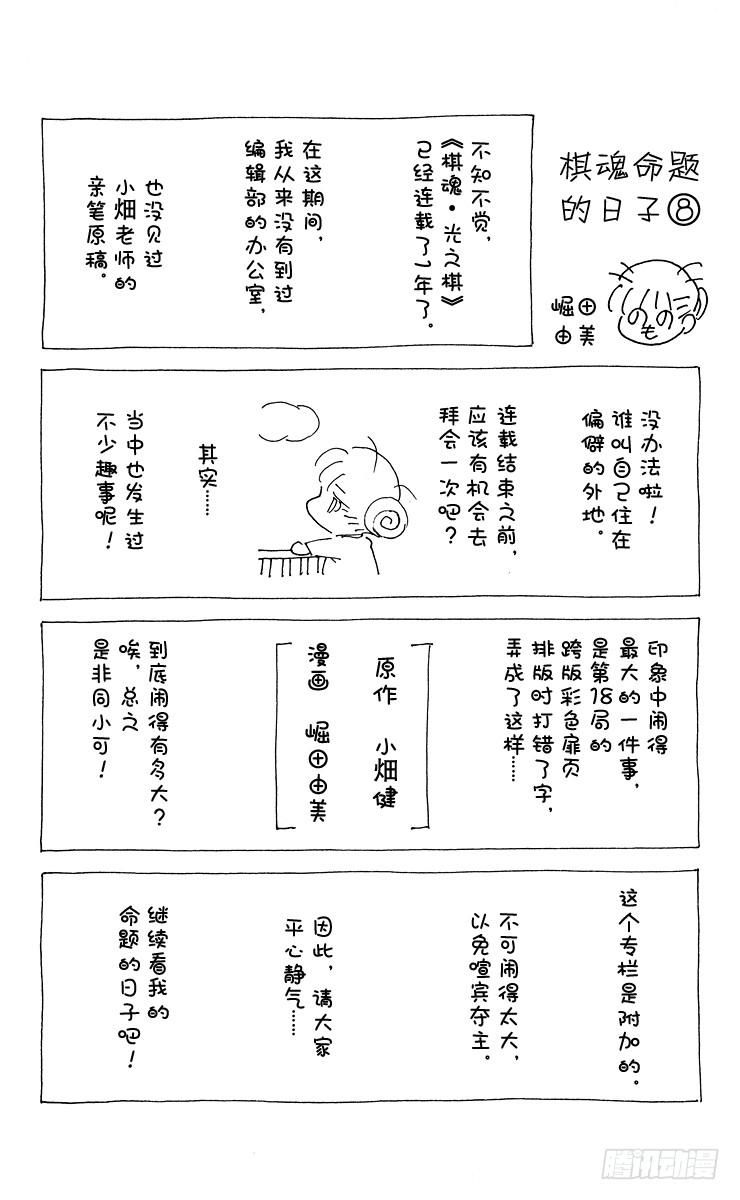 棋魂命题
的日子⑧
崛田
由美
不知不觉，
《棋魂·光之棋》
已经连载了1年了。
在这期间，
我从来没有到过
编辑部的办公室，
也没见过
小畑老师的
亲笔原稿。
没办法啦！
谁叫自己住在
偏僻的外地。
连载结束之前，
应该有机会去
拜会一次吧？
其实……
当中也发生过
不少趣事呢！
印象中闹得
最大的一件事，
是第18局的
跨版彩色扉页
排版时打错了字，
弄成了这样……
原作 小畑健
漫画 崛田由美
到底闹得有多大？
唉，总之
是非同小可！
这个专栏是附加的。
不可闹得太大，
以免喧宾夺主。
因此，请大家
平心静气……
继续看我的
命题的日子吧！
腾讯动漫